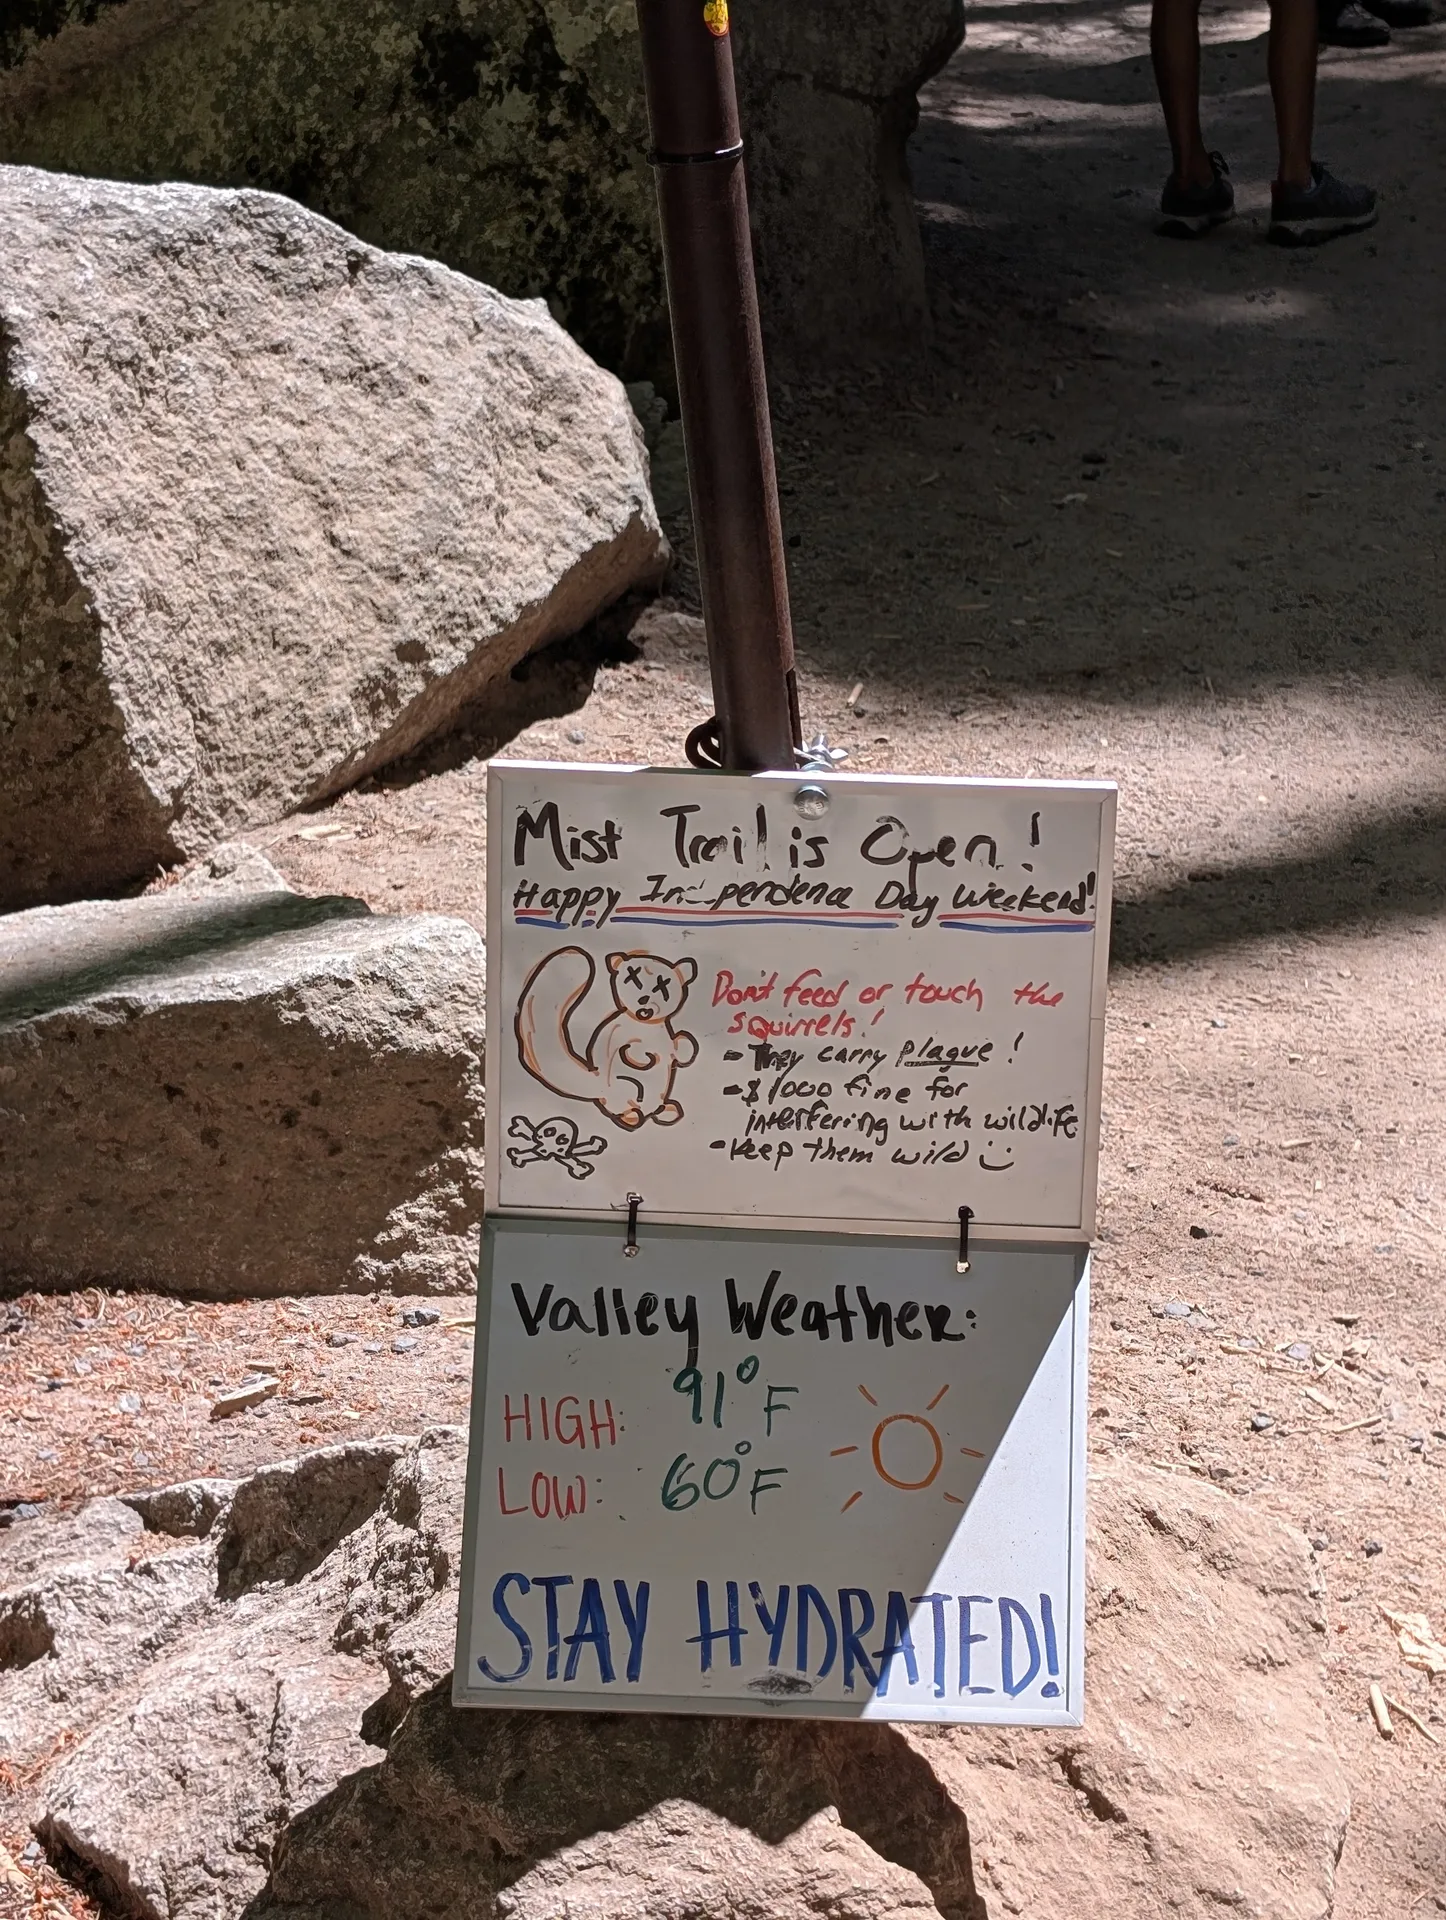 Mist Trail is Open!
Happy Independence Day Weekend!
Don't feed or touch the
squirrels!
- They carry plague!
- $1000 fine for
interfering with wildlife
- Keep them wild :)
Valley Weather:
HIGH: 91°F
LOW: 60°F
STAY HYDRATED!